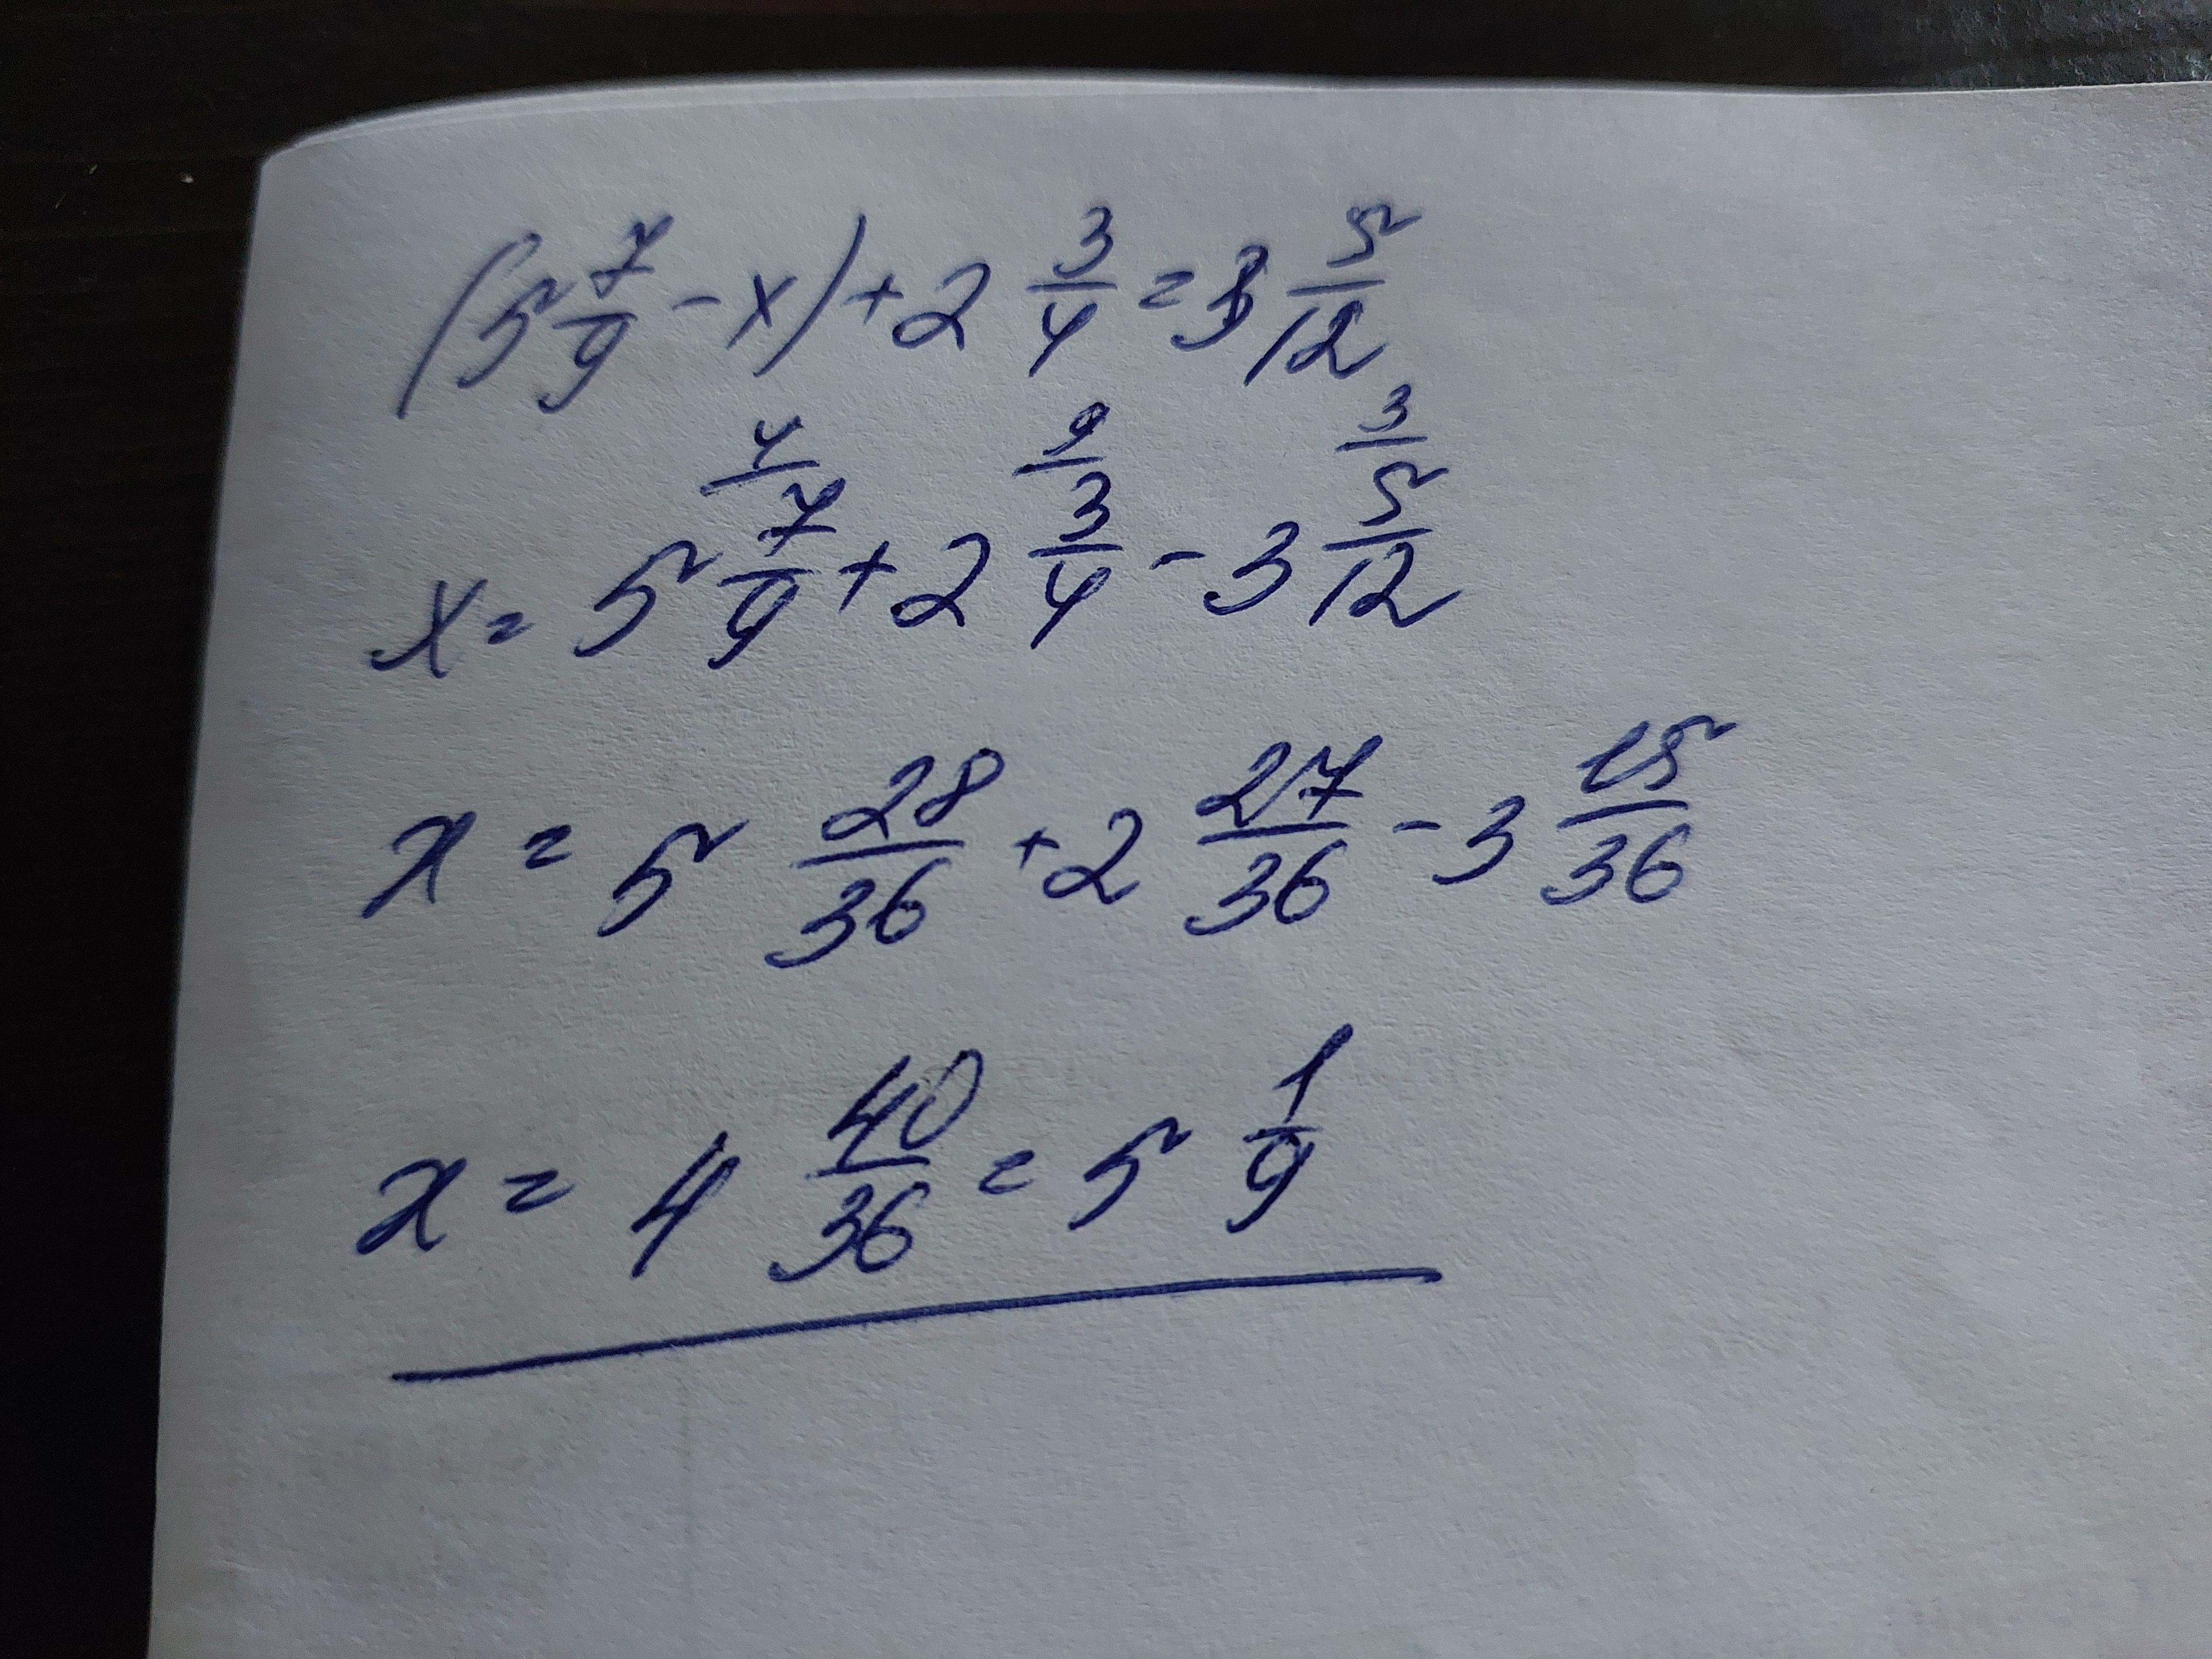 (5 7/9 - x) + 2 3/4 = 3 5/12
x = 5 7/9 + 2 3/4 - 3 5/12
4 9 3
x = 5 28/36 + 2 27/36 - 3 15/36
x = 4 40/36 = 5 1/9